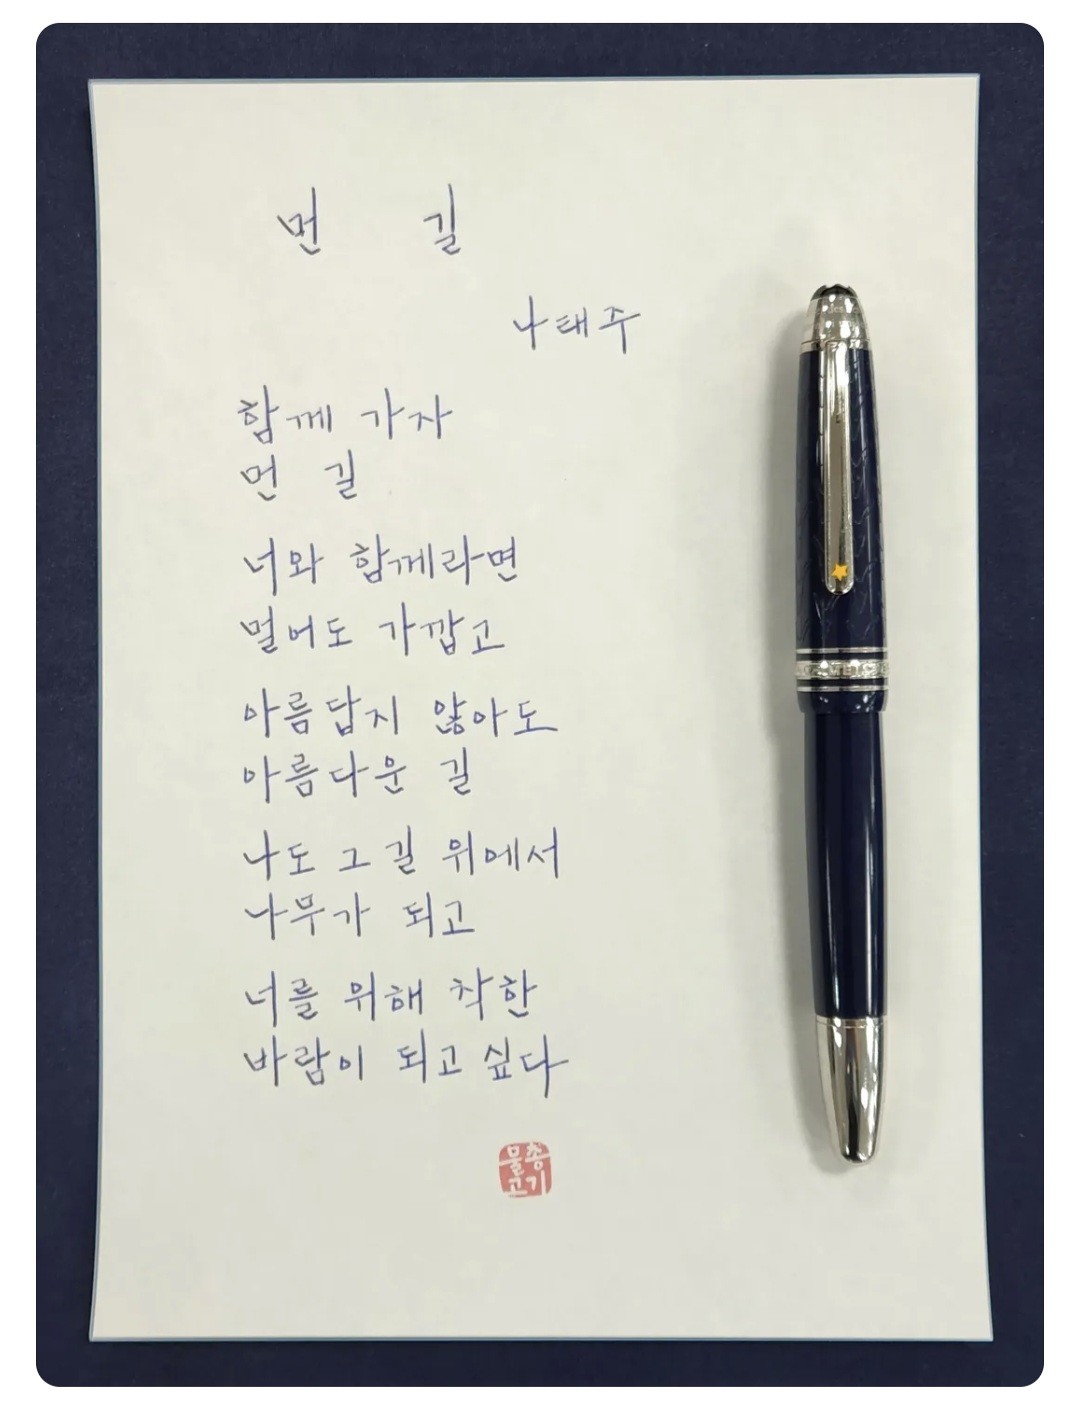 먼 길
나태주
함께 가자
먼 길
너와 함께라면
멀어도 가깝고
아름답지 않아도
아름다운 길
나도 그 길 위에서
나무가 되고
너를 위해 착한
바람이 되고 싶다
물총
고기